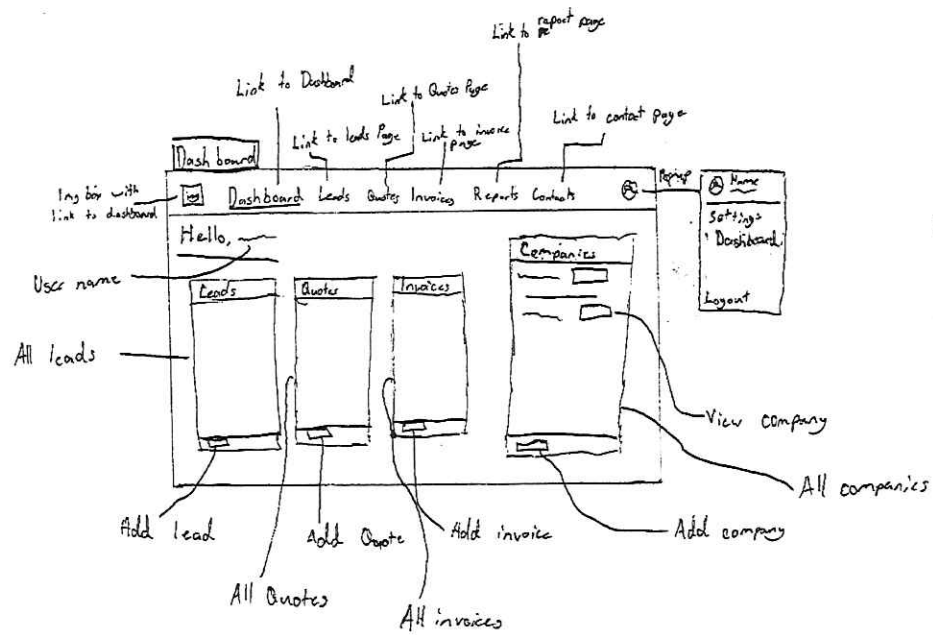 Link to report page
Link to Dashboard
Link to Quotes Page
Link to leads Page
Link to invoice page
Link to contact page
Dashboard
Img box with
link to dashboard
img
Dashboard Leads Quotes Invoices Reports Contacts
Popup
Name
Settings
Dashboard
Logout
Hello,
User name
Companies
Leads
Quotes
Invoices
All leads
View company
All companies
Add lead
Add Quote
Add invoice
Add company
All Quotes
All invoices